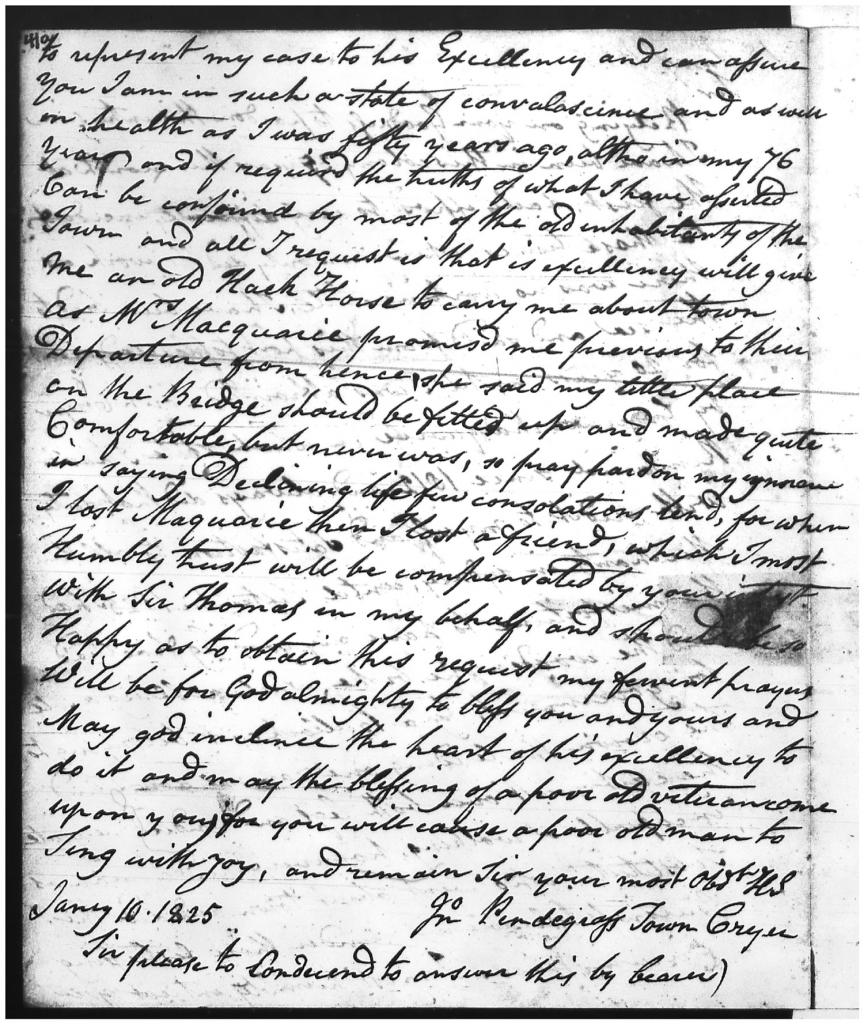 410
to represent my case to his Excellency and can assure
you I am in such a state of convalascince and as well
in health as I was fifty years ago, altho in my 76
year and if required the truths of what I have asserted
Can be confirmd by most of the old inhabitants of the
Town and all I request is that is excellency will give
me an old Hack Horse to carry me about town
as Mrs Macquarie promisd me previous to their
Departure from hence, she said my little place
on the Bridge should be fitted up and made quite
Comfortable, but never was, so pray pardon my ignorance
in saying Declining life few consolations lend, for when
I lost Maquarie then I lost a friend, which I most
Humbly trust will be compensated by your
with Sir Thomas in my behalf, and should so
Happy as to obtain this request my fervent prayers
Will be for God almighty to bless you and yours and
May god incline the heart of his excellency to
do it and may the blessing of a poor old veteran come
upon you, for you will cause a poor old man to
Sing with Joy, and remain Sir your most Obdt HS
Jany 10. 1825 Jno Pendegrass Town Cryer
Sir please to Condecend to answer this by bearer)